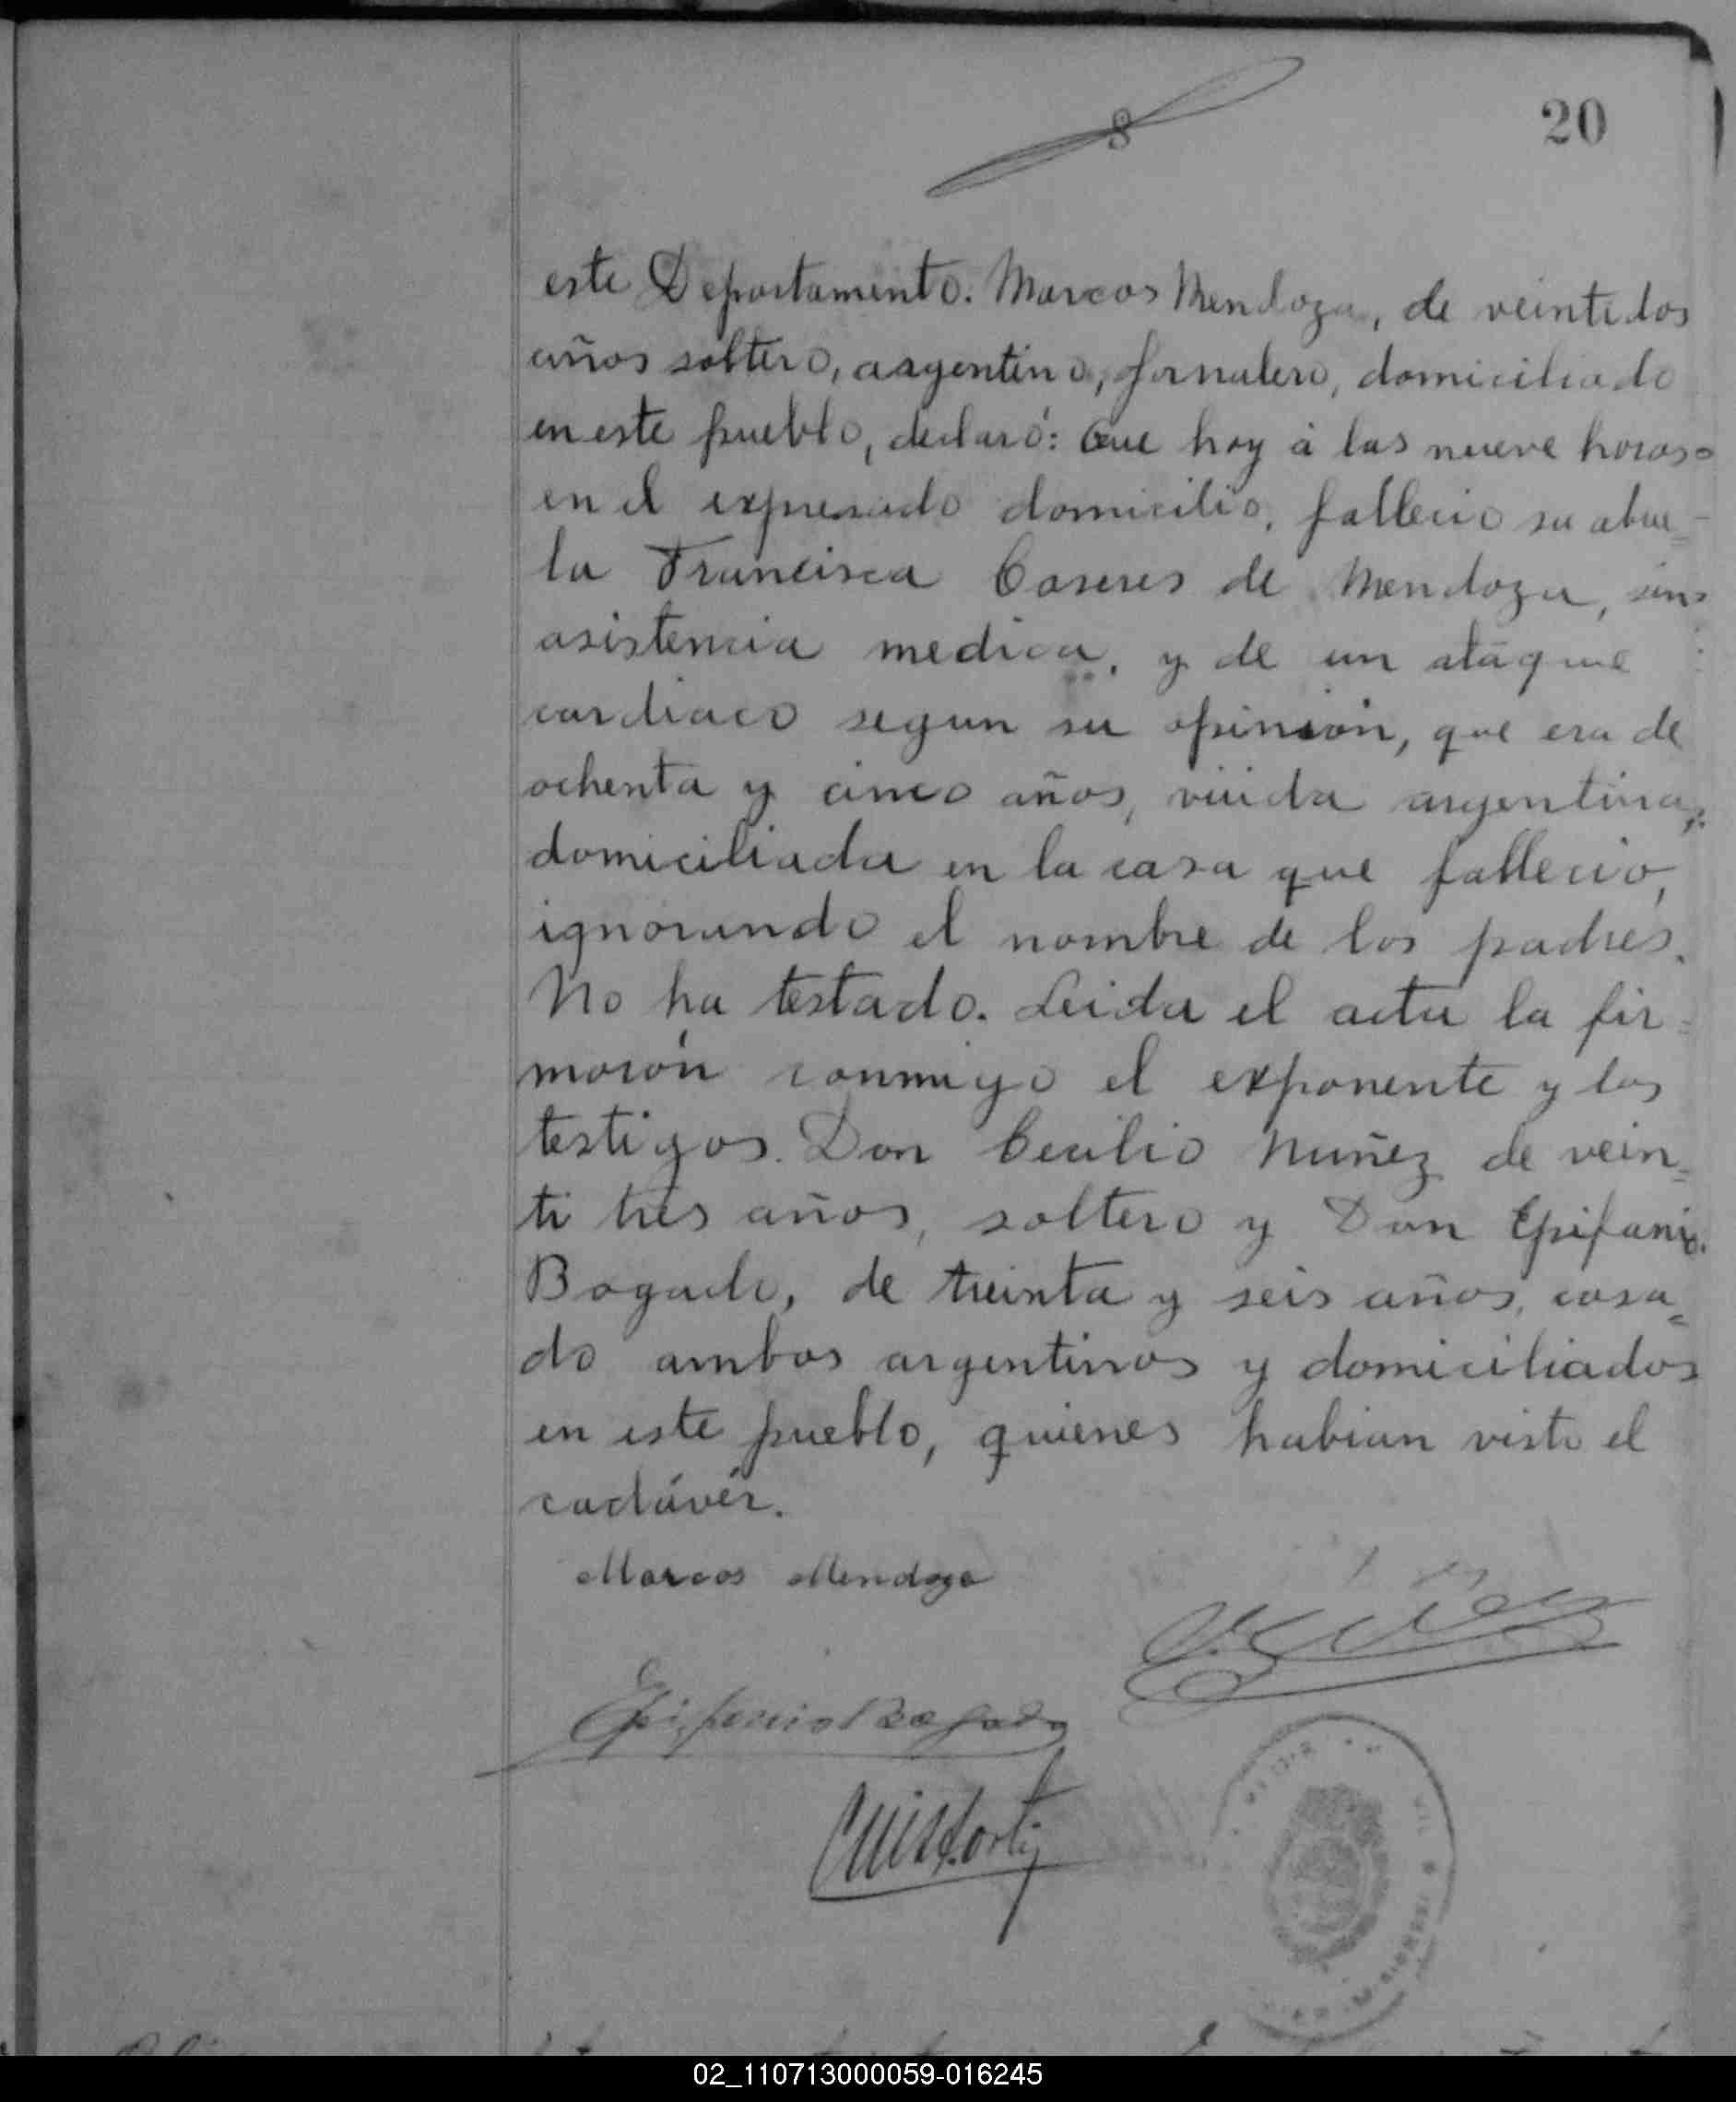 8
20
este Departamento. Marcos Mendoza, de veintidos
años soltero, argentino, jornalero, domiciliado
en este pueblo, declaró: Que hoy á las nueve horas=
en el expresado domicilio, fallecio su abue-
la Francisca Caseres de Mendoza, sin=
asistencia medica, y de un ataque
cardiaco segun su opinión, que era de
ochenta y cinco años, viuda argentina,
domiciliada en la casa que fallecio,
ignorando el nombre de los padres.
No ha testado. Leida el acta la fir=
marón conmigo el exponente y los
testigos. Don Cecilio Nuñez de vein=
ti tres años, soltero y Don Epifanio.
Bogado, de treinta y seis años, casa=
do ambos argentinos y domiciliados
en este pueblo, quienes habian visto el
cadáver.
Marcos Mendoza
Epifanio Bogado
MISIONES
02_110713000059-016245